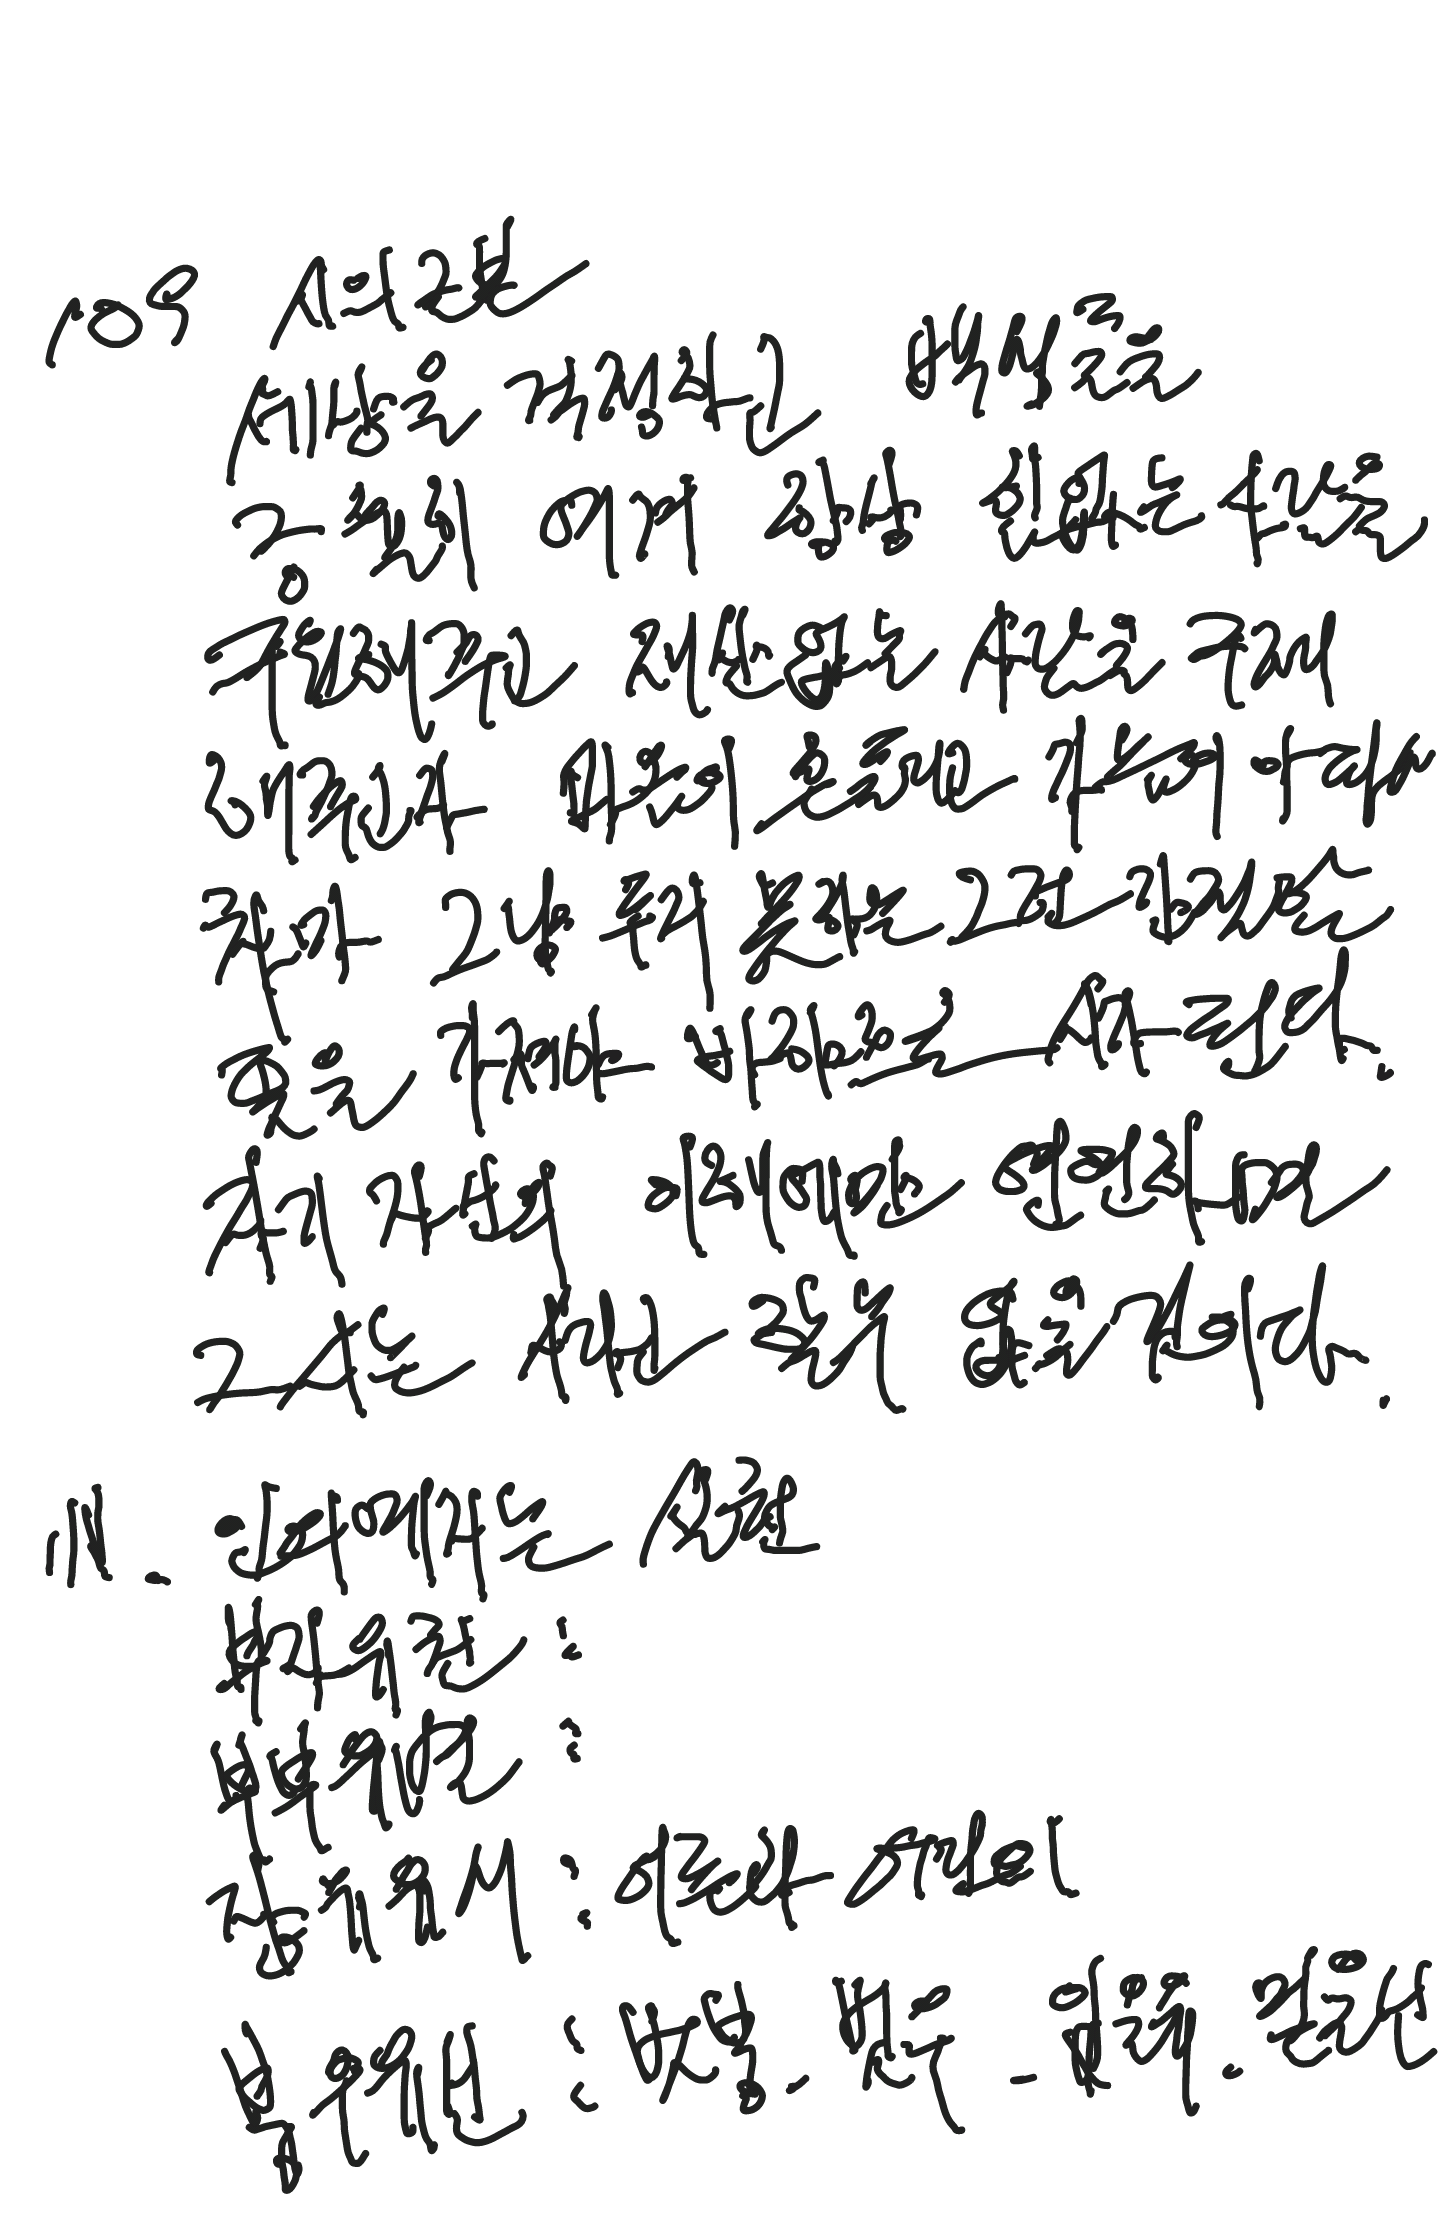 109 시의 근본
세상을 걱정하고 백성들을
긍휼히 여겨 항상 힘없는 사람을
구원해주고 재산 없는 사람을 구제
해주고자 마음이 흔들리고 가슴이 아파서
차마 그냥 두지 못하는 그런 간절한
뜻을 가져야 바야흐로 시가 된다.
자기 자신의 이해에만 연연하면
그 시는 시라고 할 수 없을 것이다.
111. 인다에자는 삼륜
부자유친 :
부부유별 :
장유유서 : 어른과 어린이
붕우유신 : 벗